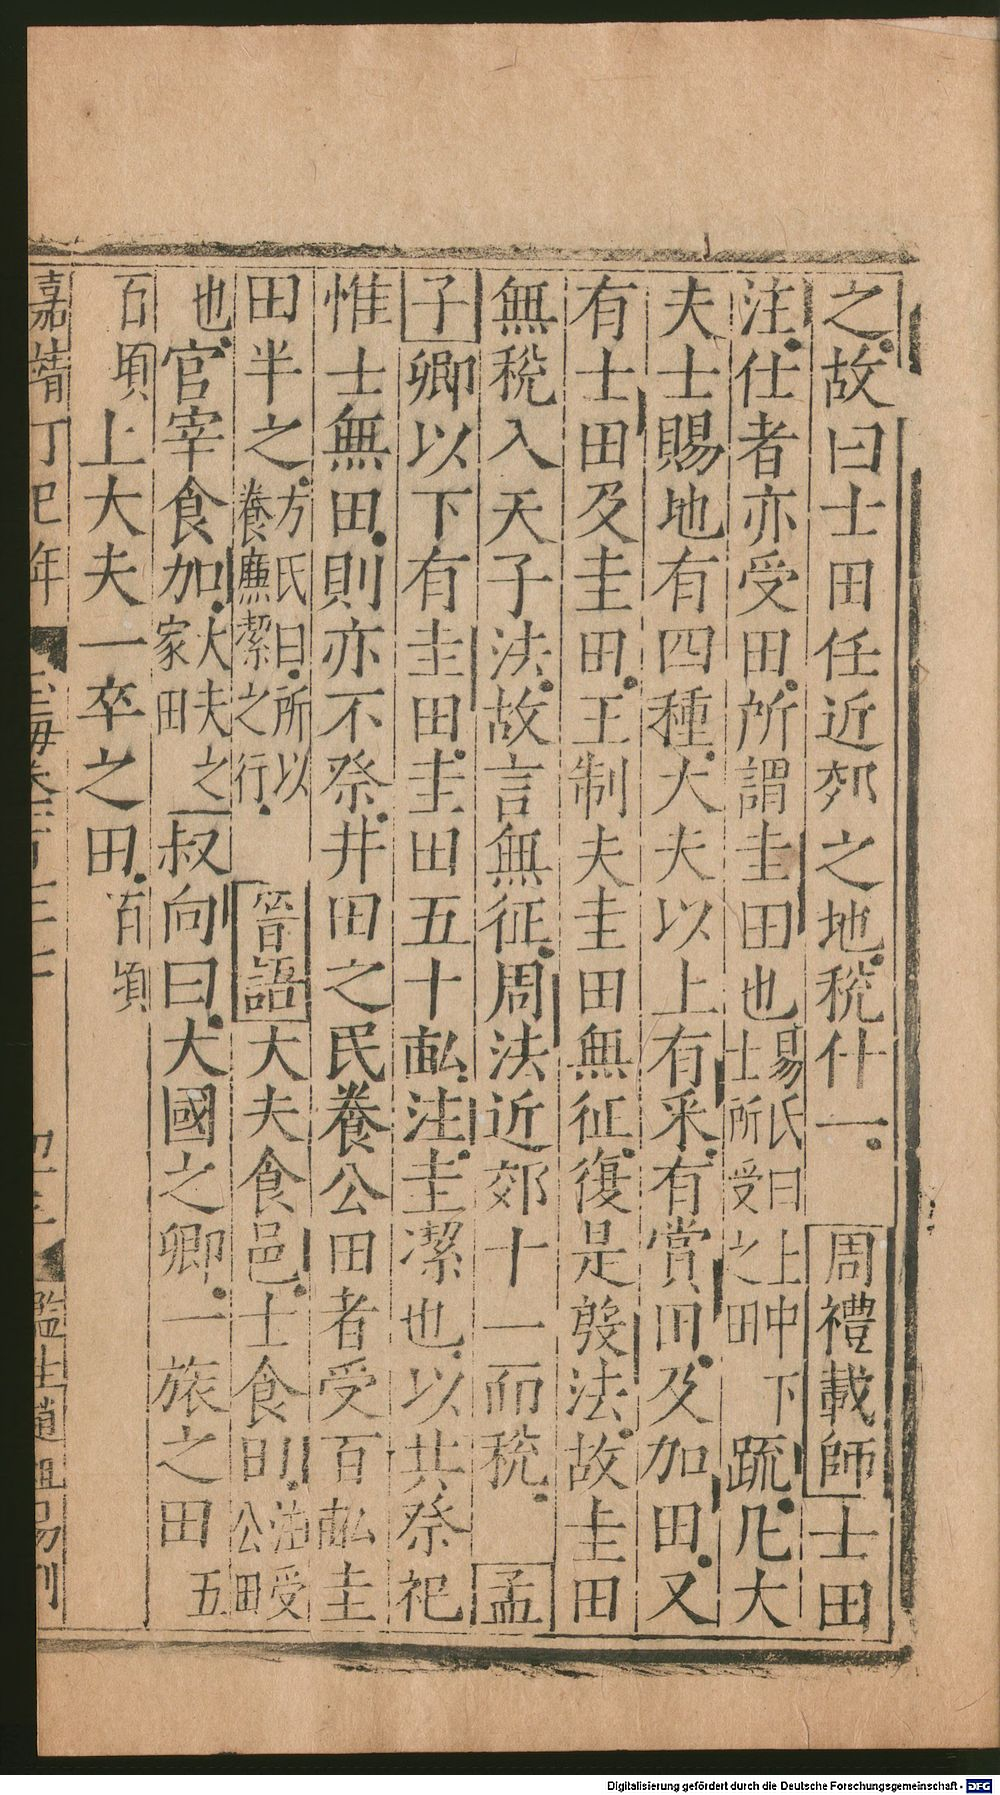 之故曰士田任近郊之地稅什一周禮載師士田
注仕者亦受田所謂圭田也易氏曰上中下士所受之田疏凡大
夫士賜地有四種大夫以上有采有賞田及加田又
有士田及圭田王制夫圭田無征復是殷法故圭田
無稅入天子法故言無征周法近郊十一而稅孟
子卿以下有圭田圭田五十畝注圭潔也以共祭祀
惟士無田則亦不祭井田之民養公田者受百畝圭
田半之方氏曰所以養廉潔之行晉語大夫食邑士食田注受公田
也官宰食加大夫之家田叔向曰大國之卿一旅之田五
百頃上大夫一卒之田百頃
嘉靖丁巳年 玉海卷 監生趙祖易刊
Digitalisierung gefördert durch die Deutsche Forschungsgemeinschaft - DFG